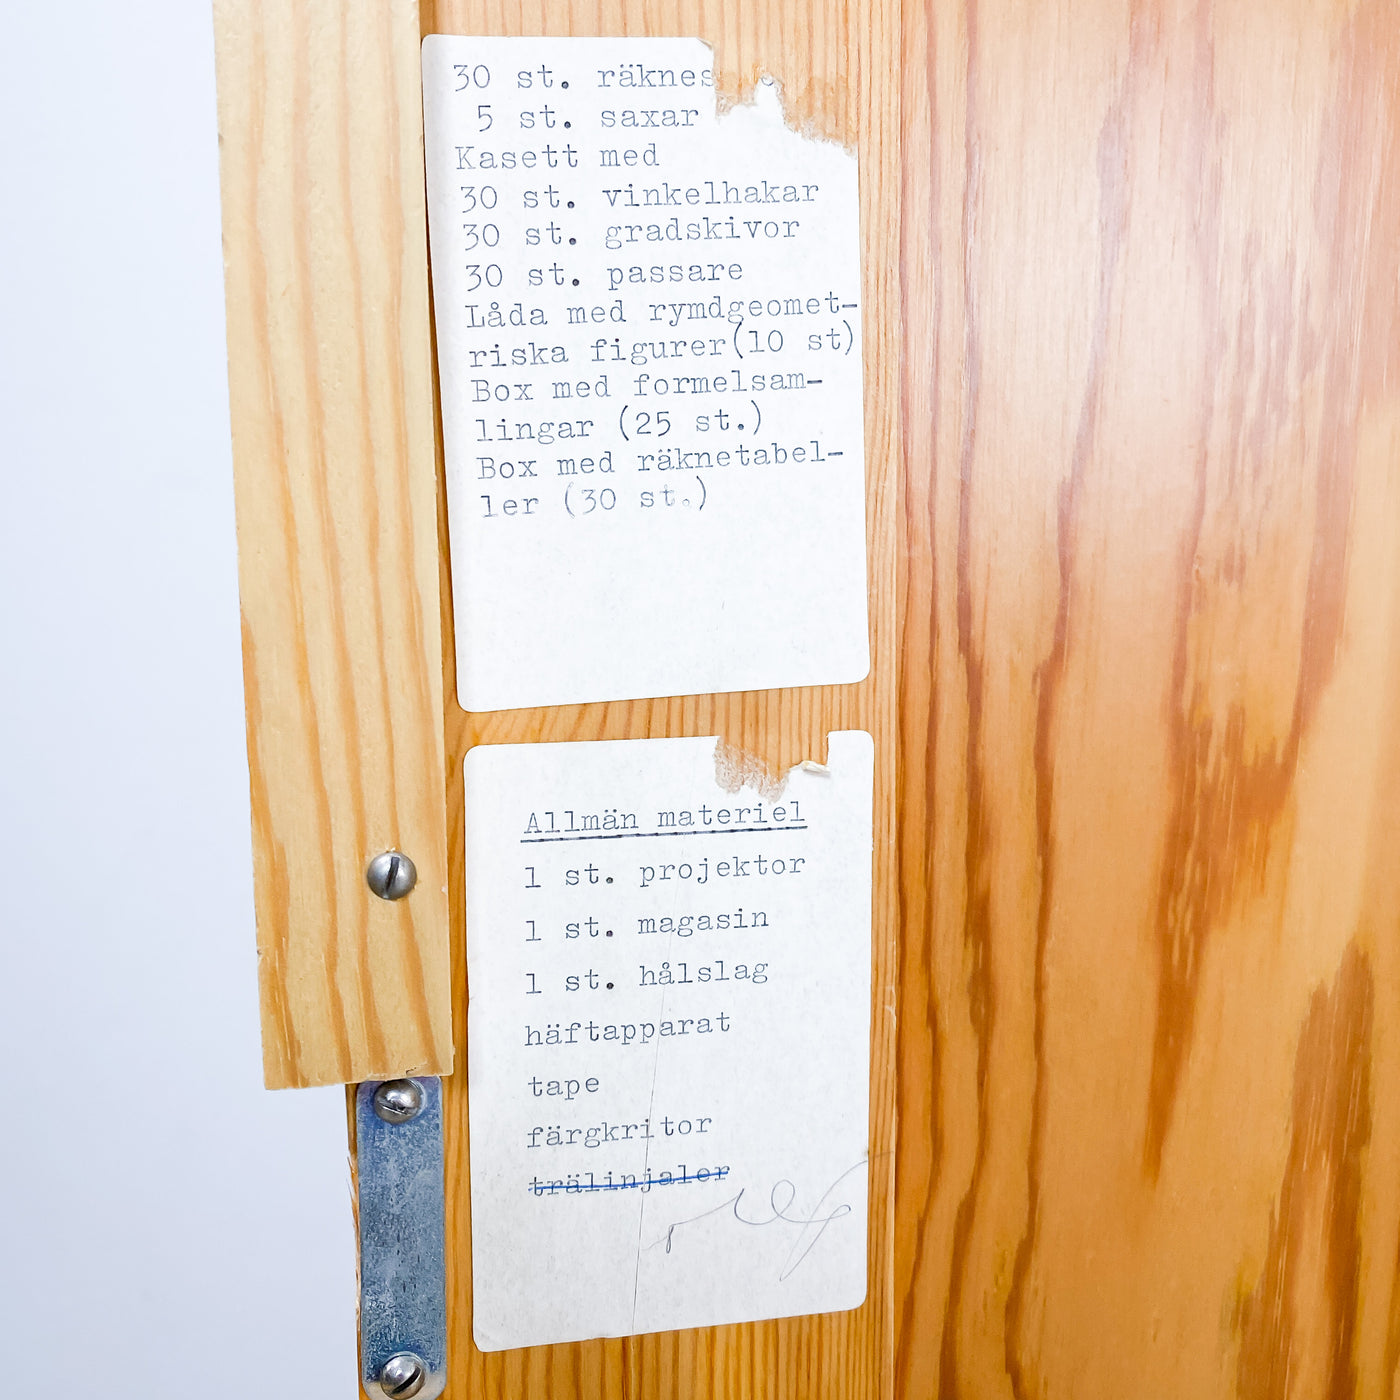 30 st. räknes
5 st. saxar
Kasett med
30 st. vinkelhakar
30 st. gradskivor
30 st. passare
Låda med rymdgeomet-
riska figurer(10 st)
Box med formelsam-
lingar (25 st.)
Box med räknetabel-
ler (30 st.)
Allmän materiel
1 st. projektor
1 st. magasin
1 st. hålslag
häftapparat
tape
färgkritor
trälinjaler